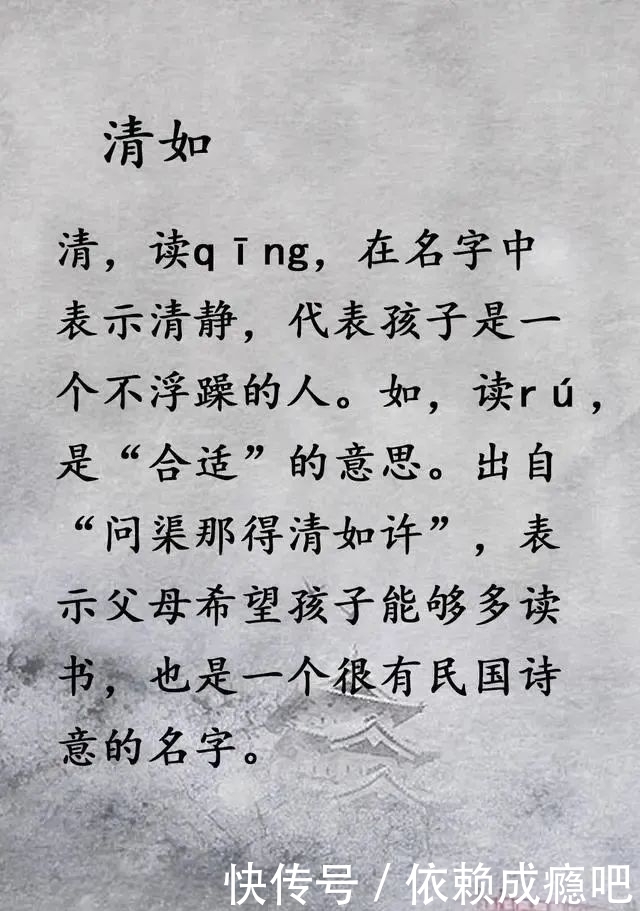 清如
清，读qīng，在名字中
表示清静，代表孩子是一
个不浮躁的人。如，读rú，
是“合适”的意思。出自
“问渠那得清如许”，表
示父母希望孩子能够多读
书，也是一个很有民国诗
意的名字。
快传号 / 依赖成瘾吧